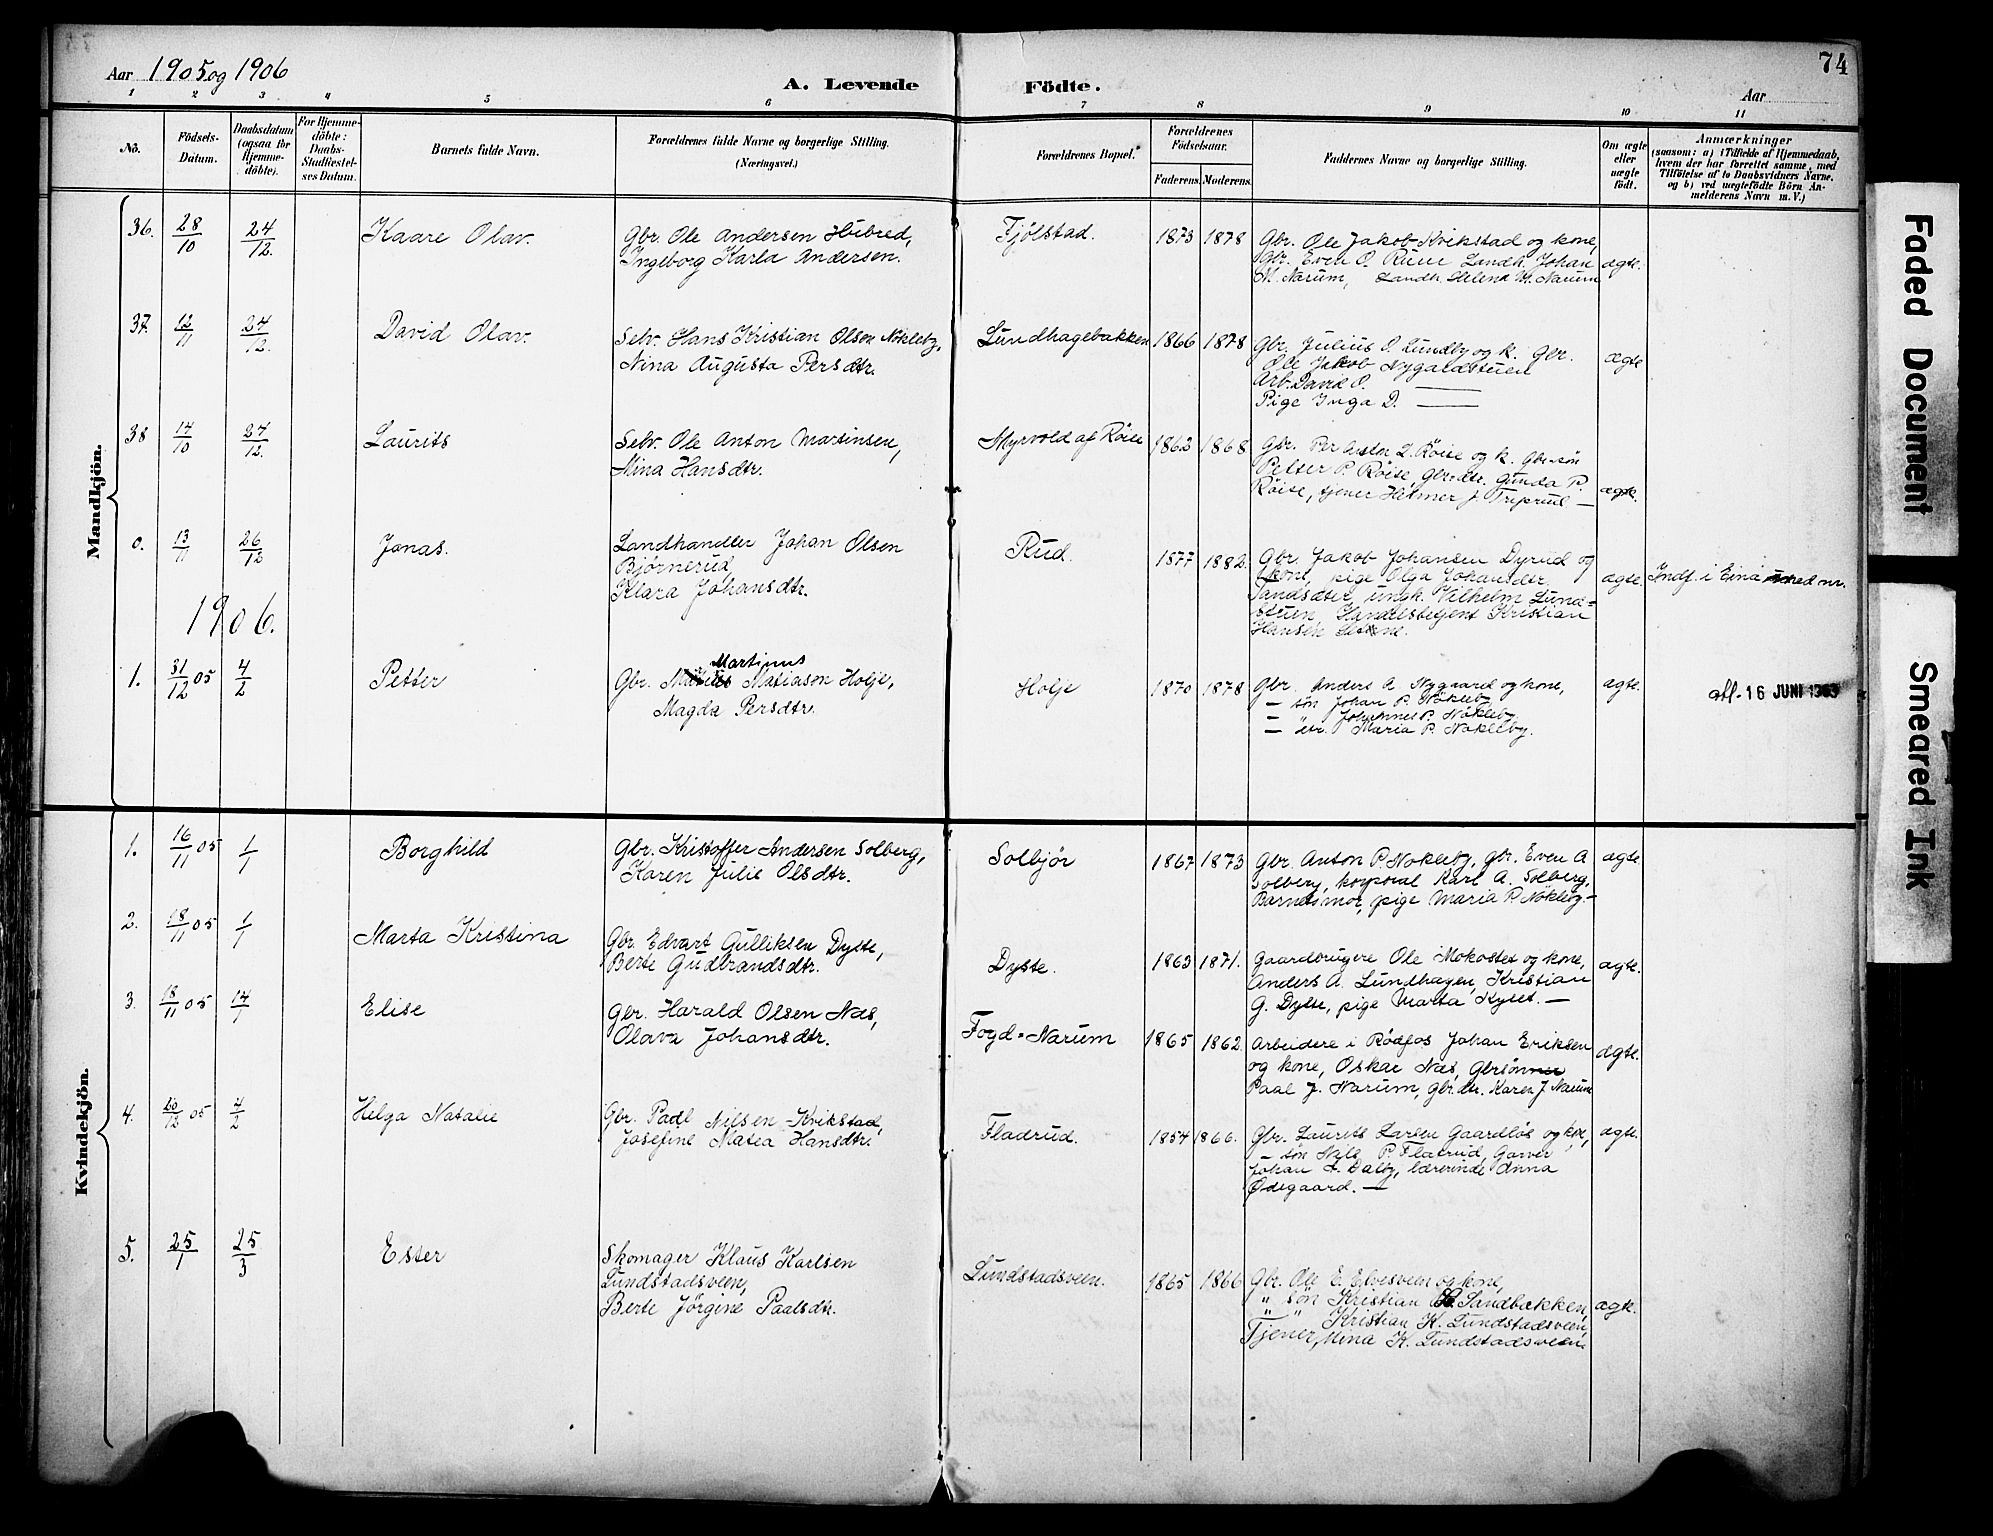 74
Aar 1905 og 1906
A. Levende Födte.
Aar
1 2 3 4 5 6 7 8 9 10 11
No.
Födsels-Datum.
Daabsdatum (ogsaa for Hjemme-döbte).
For Hjemme-döbte: Daabs-Stadfæstel-ses Datum.
Barnets fulde Navn.
Forældrenes fulde Navne og borgerlige Stilling.
(Næringsvei.)
Forældrenes Bopæl.
Forældrenes Födselsaar.
Faderens. Moderens.
Faddernes Navne og borgerlige Stilling.
Om ægte eller uægte födt.
Anmærkninger
(saasom: a) i Tilfælde af Hjemmedaab,
hvem der har forrettet samme, med
Tilföielse af to Daabsvidners Navne,
og b) ved uægtefödte Börn An-
melderens Navn m. V.)
Mandkjön.
36. 28/10 24/12. Kaare Olav.
Gbr. Ole Andersen Hubred,
Ingeborg Karla Andersen.
Fjölstad. 1873 1878
Gbr. Ole Jakob Kvikstad og kone,
Gbr. Even O. Ruue Landh. Johan
M. Narum, Landh. Helena M. Narum
ægte.
37. 12/11 24/12. David Olav.
Selv. Hans Kristian Olsen Nökleby,
Nina Augusta Persdtr.
Lundhagebakken 1866 1878
Gbr. Julius O. Lundby og k. Gbr.
Ole Jakob Nygaardstuen
Arb. David O. —
Pige Inga D. —
ægte
38 14/10 24/12. Laurits
Selv. Ole Anton Martinsen,
Nina Hansdtr.
Myrvold af Röise 1862 1868
Gbr. Per Anton L. Röise og k. Gbr-sön
Petter P. Röise, Gbr-dtr. Gunda P.
Röise, tjener Hilmer J. —
ægte.
0. 13/11 26/12 Jonas.
Landhandler Johan Olsen
Bjørnerud
Klara Johansdtr.
Rud. 1877 1882.
Gbr. Jakob Johansen Dyrud og
kone, pige Olga Johansdtr.
ungk. Vilhelm Lund=
stuen Handelsbetjent Kristian
Hansen
ægte. Indf. i Eina med nr.
1906.
1. 31/12 05 4/2 Petter
Martinus
Gbr. Matiason Holje,
Magda Persdtr.
Holje 1870 1878
Gbr. Anders A. Nygaard og kone,
— sön Johan P. Nökleby
— " Johannes P. Nökleby
— dtr. Maria P. Nökleby.
ægte. att. 16 JUNI
Kvindekjön.
1. 16/11 05 1/1 Borghild
Gbr. Kristoffer Andersen Solberg,
Karen Julie Olsdtr.
Solbjör 1867 1873
Gbr. Anton P. Nökleby, gbr. Even A
Solberg, korporal Karl A. Solberg,
Barnets mor, pige Maria P. Nökleby. —
ægte
2. 18/11 05 1/1 Marta Kristina
Gbr. Edvart Gulliksen Dyste,
Berte Gudbrandsdtr.
Dyste. 1863 1871.
Gaardbrugere Ole Mokostet og kone,
Anders A. Lundhagen, Kristian
G. Dyste, pige Marta Kyset. —
ægte.
3. 18/11 05 14/1 Elise
Gbr. Harald Olsen Næs,
Olava Johansdtr.
Fogd=Narum 1865 1862.
Arbeidere i Rödfos Johan Eriksen
og kone, Oskar Næs, Gbrsön
Paal J. Narum, gbr. dtr. Karen J. Narum
ægte.
4. 20/12 05 4/2 Helga Natalie
Gbr. Paal Nilsen Kvikstad,
Josefine Matea Hansdtr.
Fladrud. 1854 1866.
Gbr. Laurits Larsen Gaardlös og kone,
— sön Nils P. Flatrud, Garver
Johan A. Dalby, lærerinde Anna
Ødegaard. —
ægte.
5. 25/1 25/3 Ester
Skomager Klaus Karlsen
Lundstadsveen,
Berte Jörgine Paalsdtr.
Lundstadsveen. 1865 1866
Gbr. Ole E. Elvesveen og kone,
" sön Kristian Sandbakken,
" " Kristian K. Lundstadsveen
Tjener, Mina K. Lundstadsveen
ægte.
Faded Document
Smeared Ink